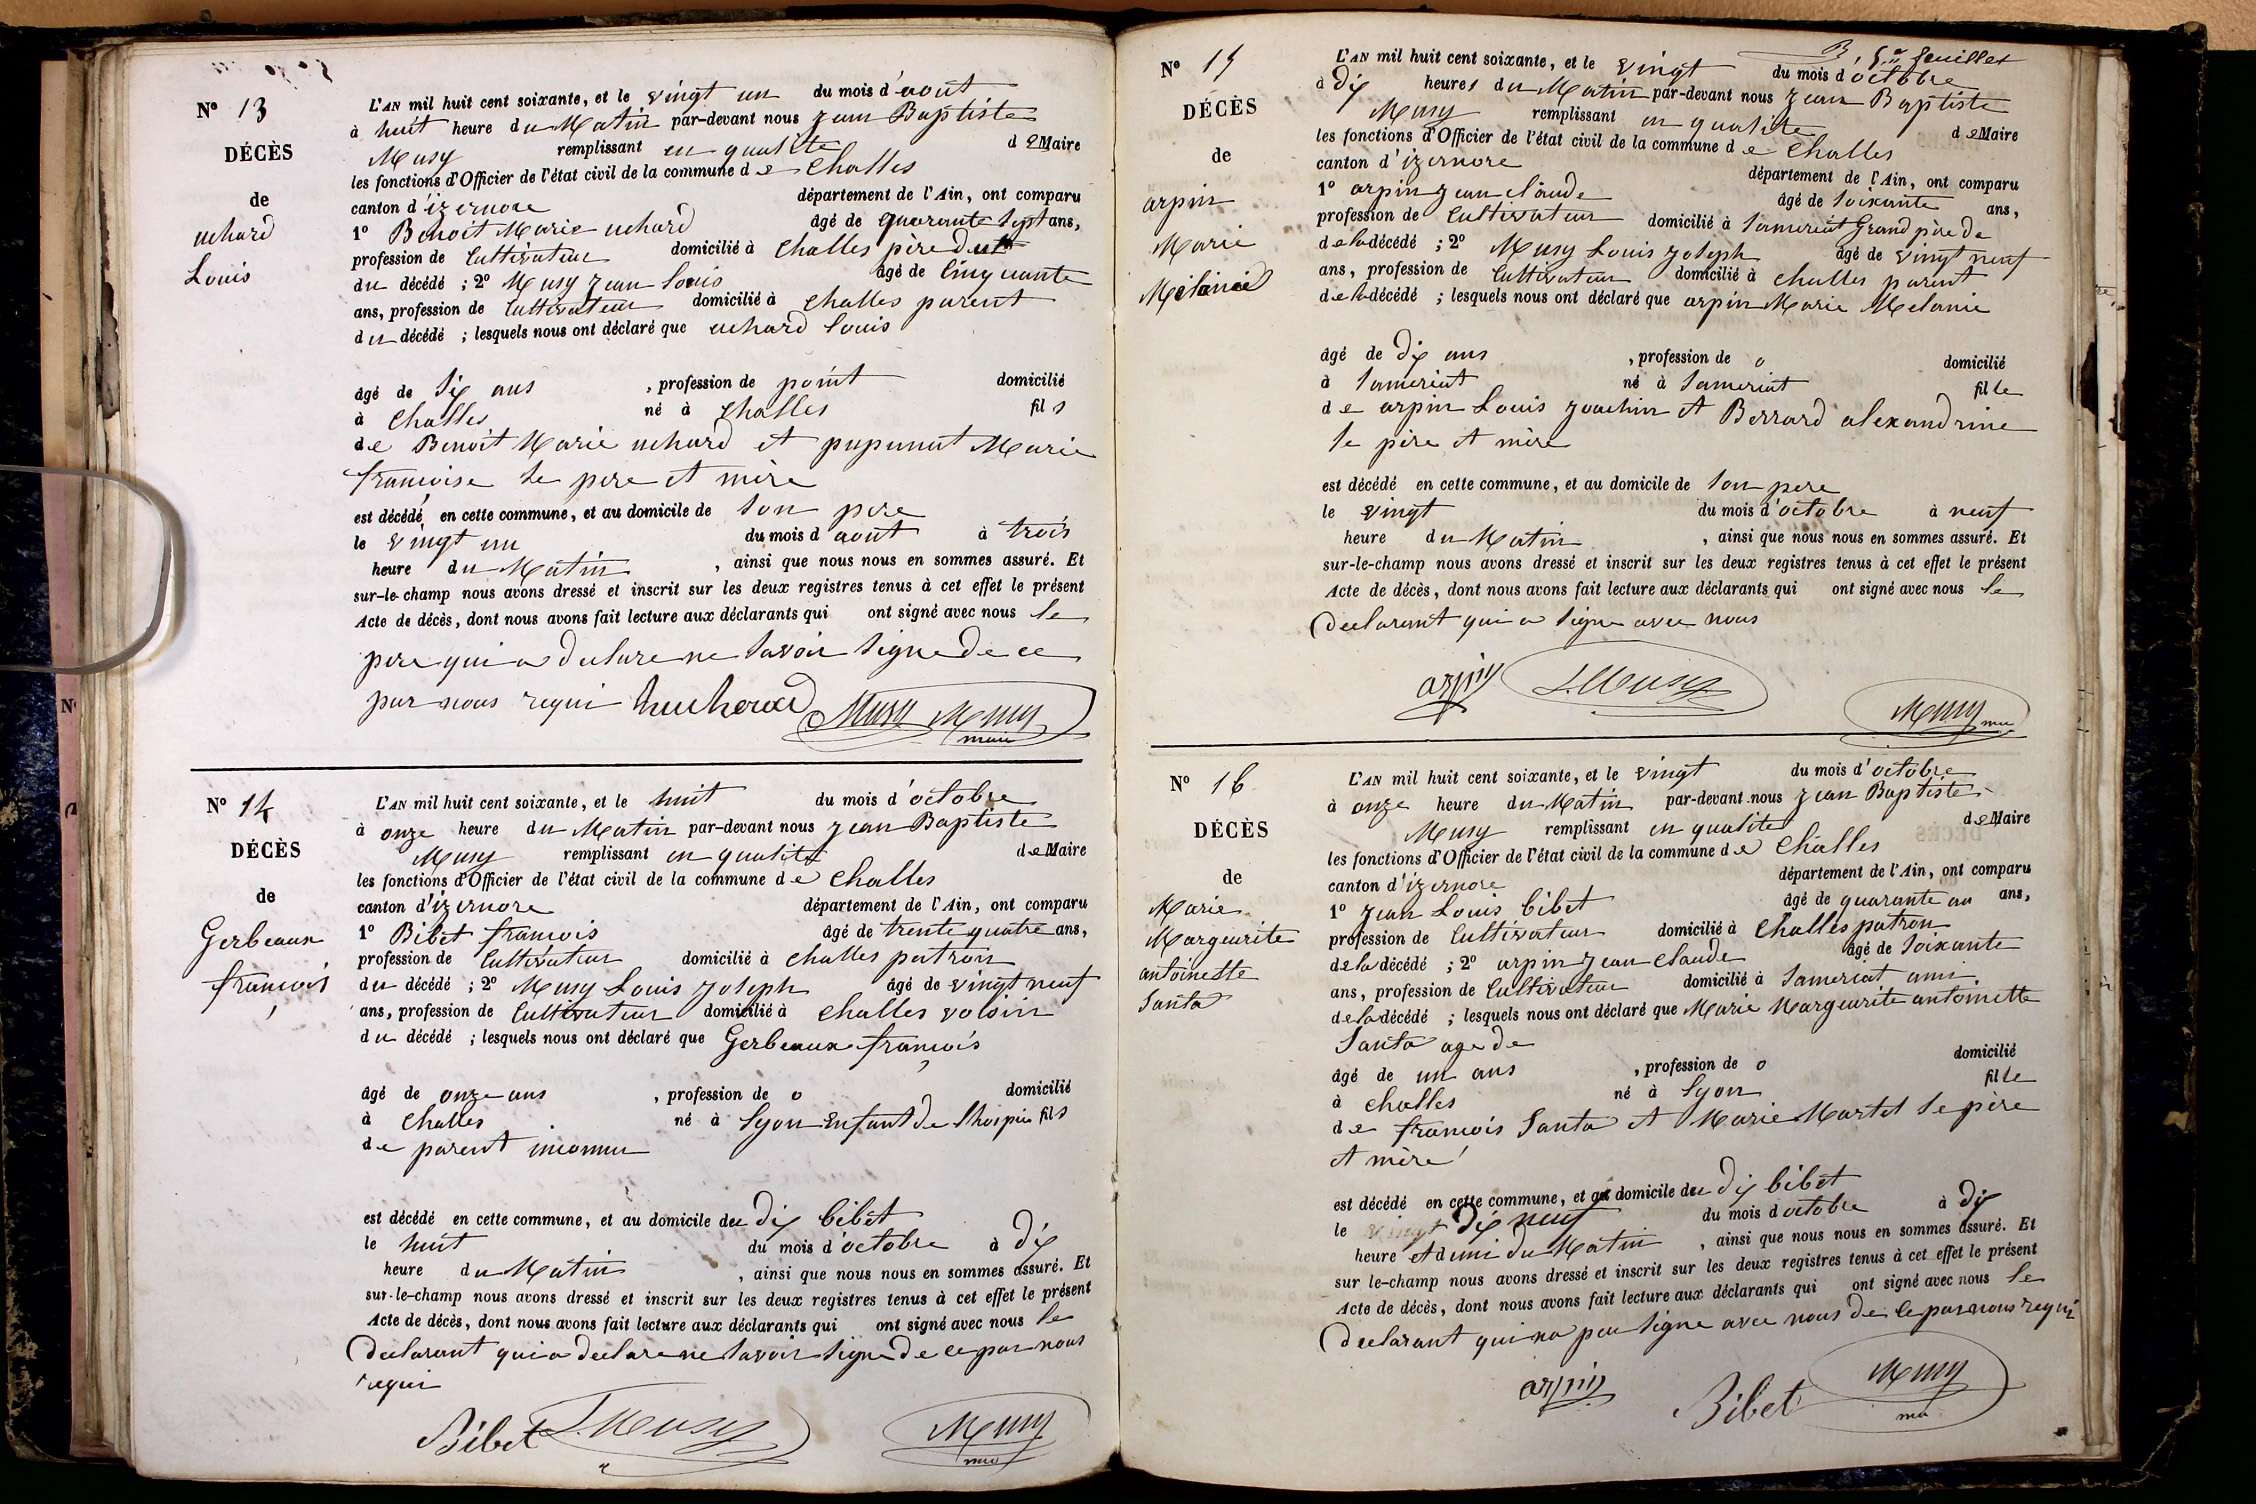 N° 13
DÉCÈS
de
uchard
Louis
L'AN mil huit cent soixante, et le vingt un du mois d'aout
à huit heure du Matin par-devant nous jean Baptiste
Musy remplissant en qualite de Maire
les fonctions d'Officier de l'état civil de la commune de Challes
canton d'izernore département de l'Ain, ont comparu
1° Benoit Marie uchard âgé de quarante sept ans,
profession de Cultivateur domicilié à Challes père
du décédé ; 2° Musy jean louis âgé de Cinquante
ans, profession de Cultivateur domicilié à Challes parent
du décédé ; lesquels nous ont déclaré que uchard louis
âgé de six ans , profession de point domicilié
à Challes né à Challes fils
de Benoit Marie uchard et pupunat Marie
francoise se pere et mère
est décédé en cette commune, et au domicile de son pere
le vingt un du mois d'aout à trois
heure du Matin , ainsi que nous nous en sommes assuré. Et
sur-le-champ nous avons dressé et inscrit sur les deux registres tenus à cet effet le présent
Acte de décès, dont nous avons fait lecture aux déclarants qui ont signé avec nous le
pere qui a declare ne savoir signe de ce
par nous requi Musy Musy
maire
N° 14
DÉCÈS
de
Gerbeaux
francois
L'AN mil huit cent soixante, et le huit du mois d'octobre
à onze heure du Matin par-devant nous jean Baptiste
Musy remplissant en qualite de Maire
les fonctions d'Officier de l'état civil de la commune de Challes
canton d'izernore département de l'Ain, ont comparu
1° Bibet francois âgé de trente quatre ans,
profession de Cultivateur domicilié à Challes patron
du décédé ; 2° Musy Louis joseph âgé de vingt neuf
ans, profession de Cultivateur domicilié à Challes voisin
du décédé ; lesquels nous ont déclaré que Gerbeaux francois
âgé de onze ans , profession de o domicilié
à Challes né à Lyon enfant de lhospice fils
de parent inconnu
est décédé en cette commune, et au domicile du dix bibet
le huit du mois d'octobre à dix
heure du Matin , ainsi que nous nous en sommes assuré. Et
sur-le-champ nous avons dressé et inscrit sur les deux registres tenus à cet effet le présent
Acte de décès, dont nous avons fait lecture aux déclarants qui ont signé avec nous le
declarant qui a declare ne savoir signe de ce par nous
requi
Bibet L. Musy Musy
N° 15
DÉCÈS
de
arpin
Marie
Melanie
feuillet
L'AN mil huit cent soixante, et le vingt du mois d'octobre
à dix heures du Matin par-devant nous jean Baptiste
Musy remplissant en qualite de Maire
les fonctions d'Officier de l'état civil de la commune de Challes
canton d'izernore département de l'Ain, ont comparu
1° arpin jean claude âgé de soixante ans,
profession de Cultivateur domicilié à Sameriat Grand père de
de la décédé ; 2° Musy Louis joseph âgé de vingt neuf
ans, profession de Cultivateur domicilié à Challes parent
de la décédé ; lesquels nous ont déclaré que arpin Marie Melanie
âgé de dix ans , profession de o domicilié
à Sameriat né à Sameriat fille
de arpin Louis joachin et Berrard alexandrine
se père et mère
est décédé en cette commune, et au domicile de son pere
le vingt du mois d'octobre à neuf
heure du Matin , ainsi que nous nous en sommes assuré. Et
sur-le-champ nous avons dressé et inscrit sur les deux registres tenus à cet effet le présent
Acte de décès, dont nous avons fait lecture aux déclarants qui ont signé avec nous le
declarant qui a signe avec nous
arpin L. Musy Musy
N° 16
DÉCÈS
de
Marie
Margeurite
antoinette
Santa
L'AN mil huit cent soixante, et le vingt du mois d'octobre
à onze heure du Matin par-devant nous jean Baptiste
Musy remplissant en qualite de Maire
les fonctions d'Officier de l'état civil de la commune de Challes
canton d'izernore département de l'Ain, ont comparu
1° jean Louis bibet âgé de quarante un ans,
profession de Cultivateur domicilié à Challes patron
de la décédé ; 2° arpin jean claude âgé de soixante
ans, profession de Cultivateur domicilié à Sameriat ami
de la décédé ; lesquels nous ont déclaré que Marie Margeurite antoinette
Santa age de
âgé de un ans , profession de o domicilié
à Challes né à Lyon fille
de francois Santa et Marie Martet se père
et mère
est décédé en cette commune, et au domicile du dix bibet
le vingt dix neuf du mois d'octobre à dix
heure et demi du Matin , ainsi que nous nous en sommes assuré. Et
sur le-champ nous avons dressé et inscrit sur les deux registres tenus à cet effet le présent
Acte de décès, dont nous avons fait lecture aux déclarants qui ont signé avec nous le
declarant qui na peu signe avec nous de ce par nous requi
arpin Bibet Musy